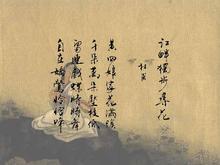 江畔獨步尋花
杜甫
黃四娘家花滿蹊
千朵萬朵壓枝低
留連戲蝶時時舞
自在嬌鶯恰恰啼